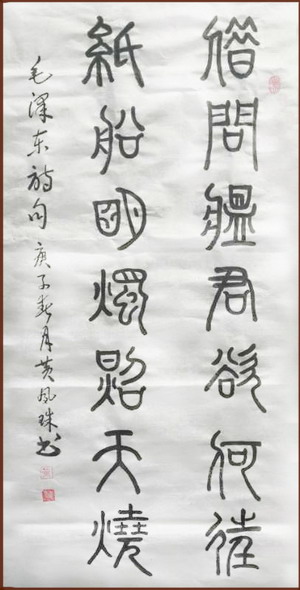 借問瘟君欲何往
紙船明燭照天燒
毛泽东诗句 庚子春月黄凤珠书